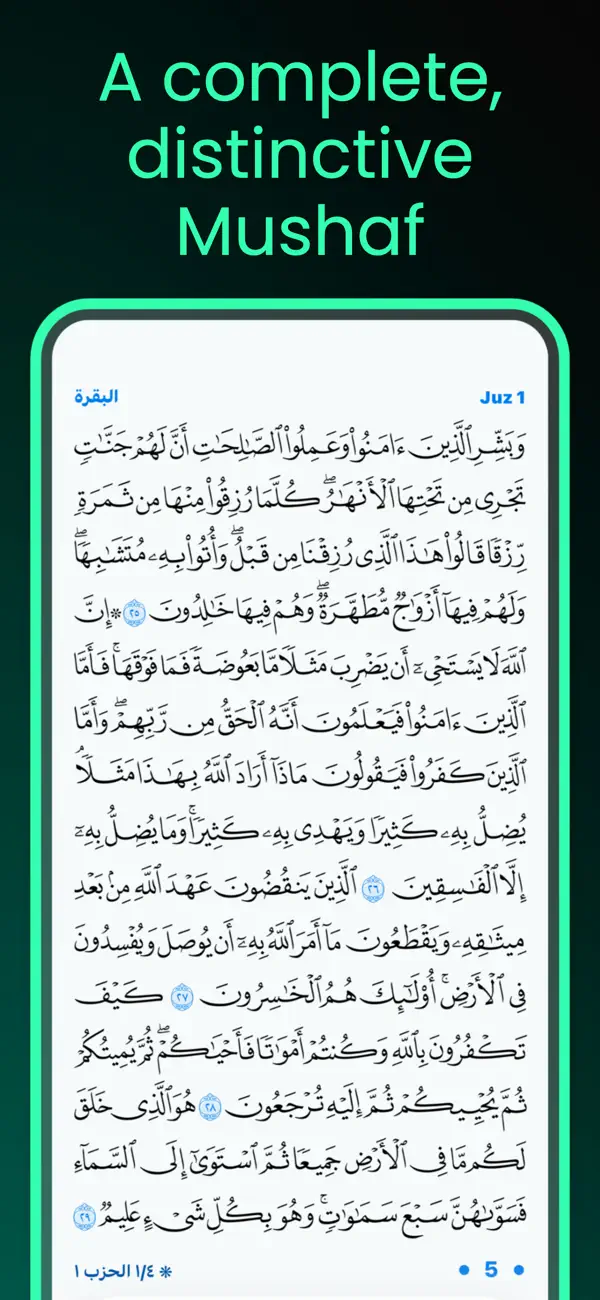 A complete,
distinctive
Mushaf
البقرة Juz 1
وَبَشِّرِ ٱلَّذِينَ ءَامَنُوا۟ وَعَمِلُوا۟ ٱلصَّٰلِحَٰتِ أَنَّ لَهُمْ جَنَّٰتٍ
تَجْرِى مِن تَحْتِهَا ٱلْأَنْهَٰرُ ۖ كُلَّمَا رُزِقُوا۟ مِنْهَا مِن ثَمَرَةٍ
رِّزْقًا قَالُوا۟ هَٰذَا ٱلَّذِى رُزِقْنَا مِن قَبْلُ ۖ وَأُتُوا۟ بِهِۦ مُتَشَٰبِهًا ۖ
وَلَهُمْ فِيهَآ أَزْوَٰجٌ مُّطَهَّرَةٌ ۖ وَهُمْ فِيهَا خَٰلِدُونَ ٢٥ ۞ إِنَّ
ٱللَّهَ لَا يَسْتَحْىِۦٓ أَن يَضْرِبَ مَثَلًا مَّا بَعُوضَةً فَمَا فَوْقَهَا ۚ فَأَمَّا
ٱلَّذِينَ ءَامَنُوا۟ فَيَعْلَمُونَ أَنَّهُ ٱلْحَقُّ مِن رَّبِّهِمْ ۖ وَأَمَّا
ٱلَّذِينَ كَفَرُوا۟ فَيَقُولُونَ مَاذَآ أَرَادَ ٱللَّهُ بِهَٰذَا مَثَلًا ۘ
يُضِلُّ بِهِۦ كَثِيرًا وَيَهْدِى بِهِۦ كَثِيرًا ۚ وَمَا يُضِلُّ بِهِۦٓ
إِلَّا ٱلْفَٰسِقِينَ ٢٦ ٱلَّذِينَ يَنقُضُونَ عَهْدَ ٱللَّهِ مِنۢ بَعْدِ
مِيثَٰقِهِۦ وَيَقْطَعُونَ مَآ أَمَرَ ٱللَّهُ بِهِۦٓ أَن يُوصَلَ وَيُفْسِدُونَ
فِى ٱلْأَرْضِ ۚ أُو۟لَٰٓئِكَ هُمُ ٱلْخَٰسِرُونَ ٢٧ كَيْفَ
تَكْفُرُونَ بِٱللَّهِ وَكُنتُمْ أَمْوَٰتًا فَأَحْيَٰكُمْ ۖ ثُمَّ يُمِيتُكُمْ
ثُمَّ يُحْيِيكُمْ ثُمَّ إِلَيْهِ تُرْجَعُونَ ٢٨ هُوَ ٱلَّذِى خَلَقَ
لَكُم مَّا فِى ٱلْأَرْضِ جَمِيعًا ثُمَّ ٱسْتَوَىٰٓ إِلَى ٱلسَّمَآءِ
فَسَوَّىٰهُنَّ سَبْعَ سَمَٰوَٰتٍ ۚ وَهُوَ بِكُلِّ شَىْءٍ عَلِيمٌ ٢٩
۞ ١/٤ الحزب ١ • 5 •